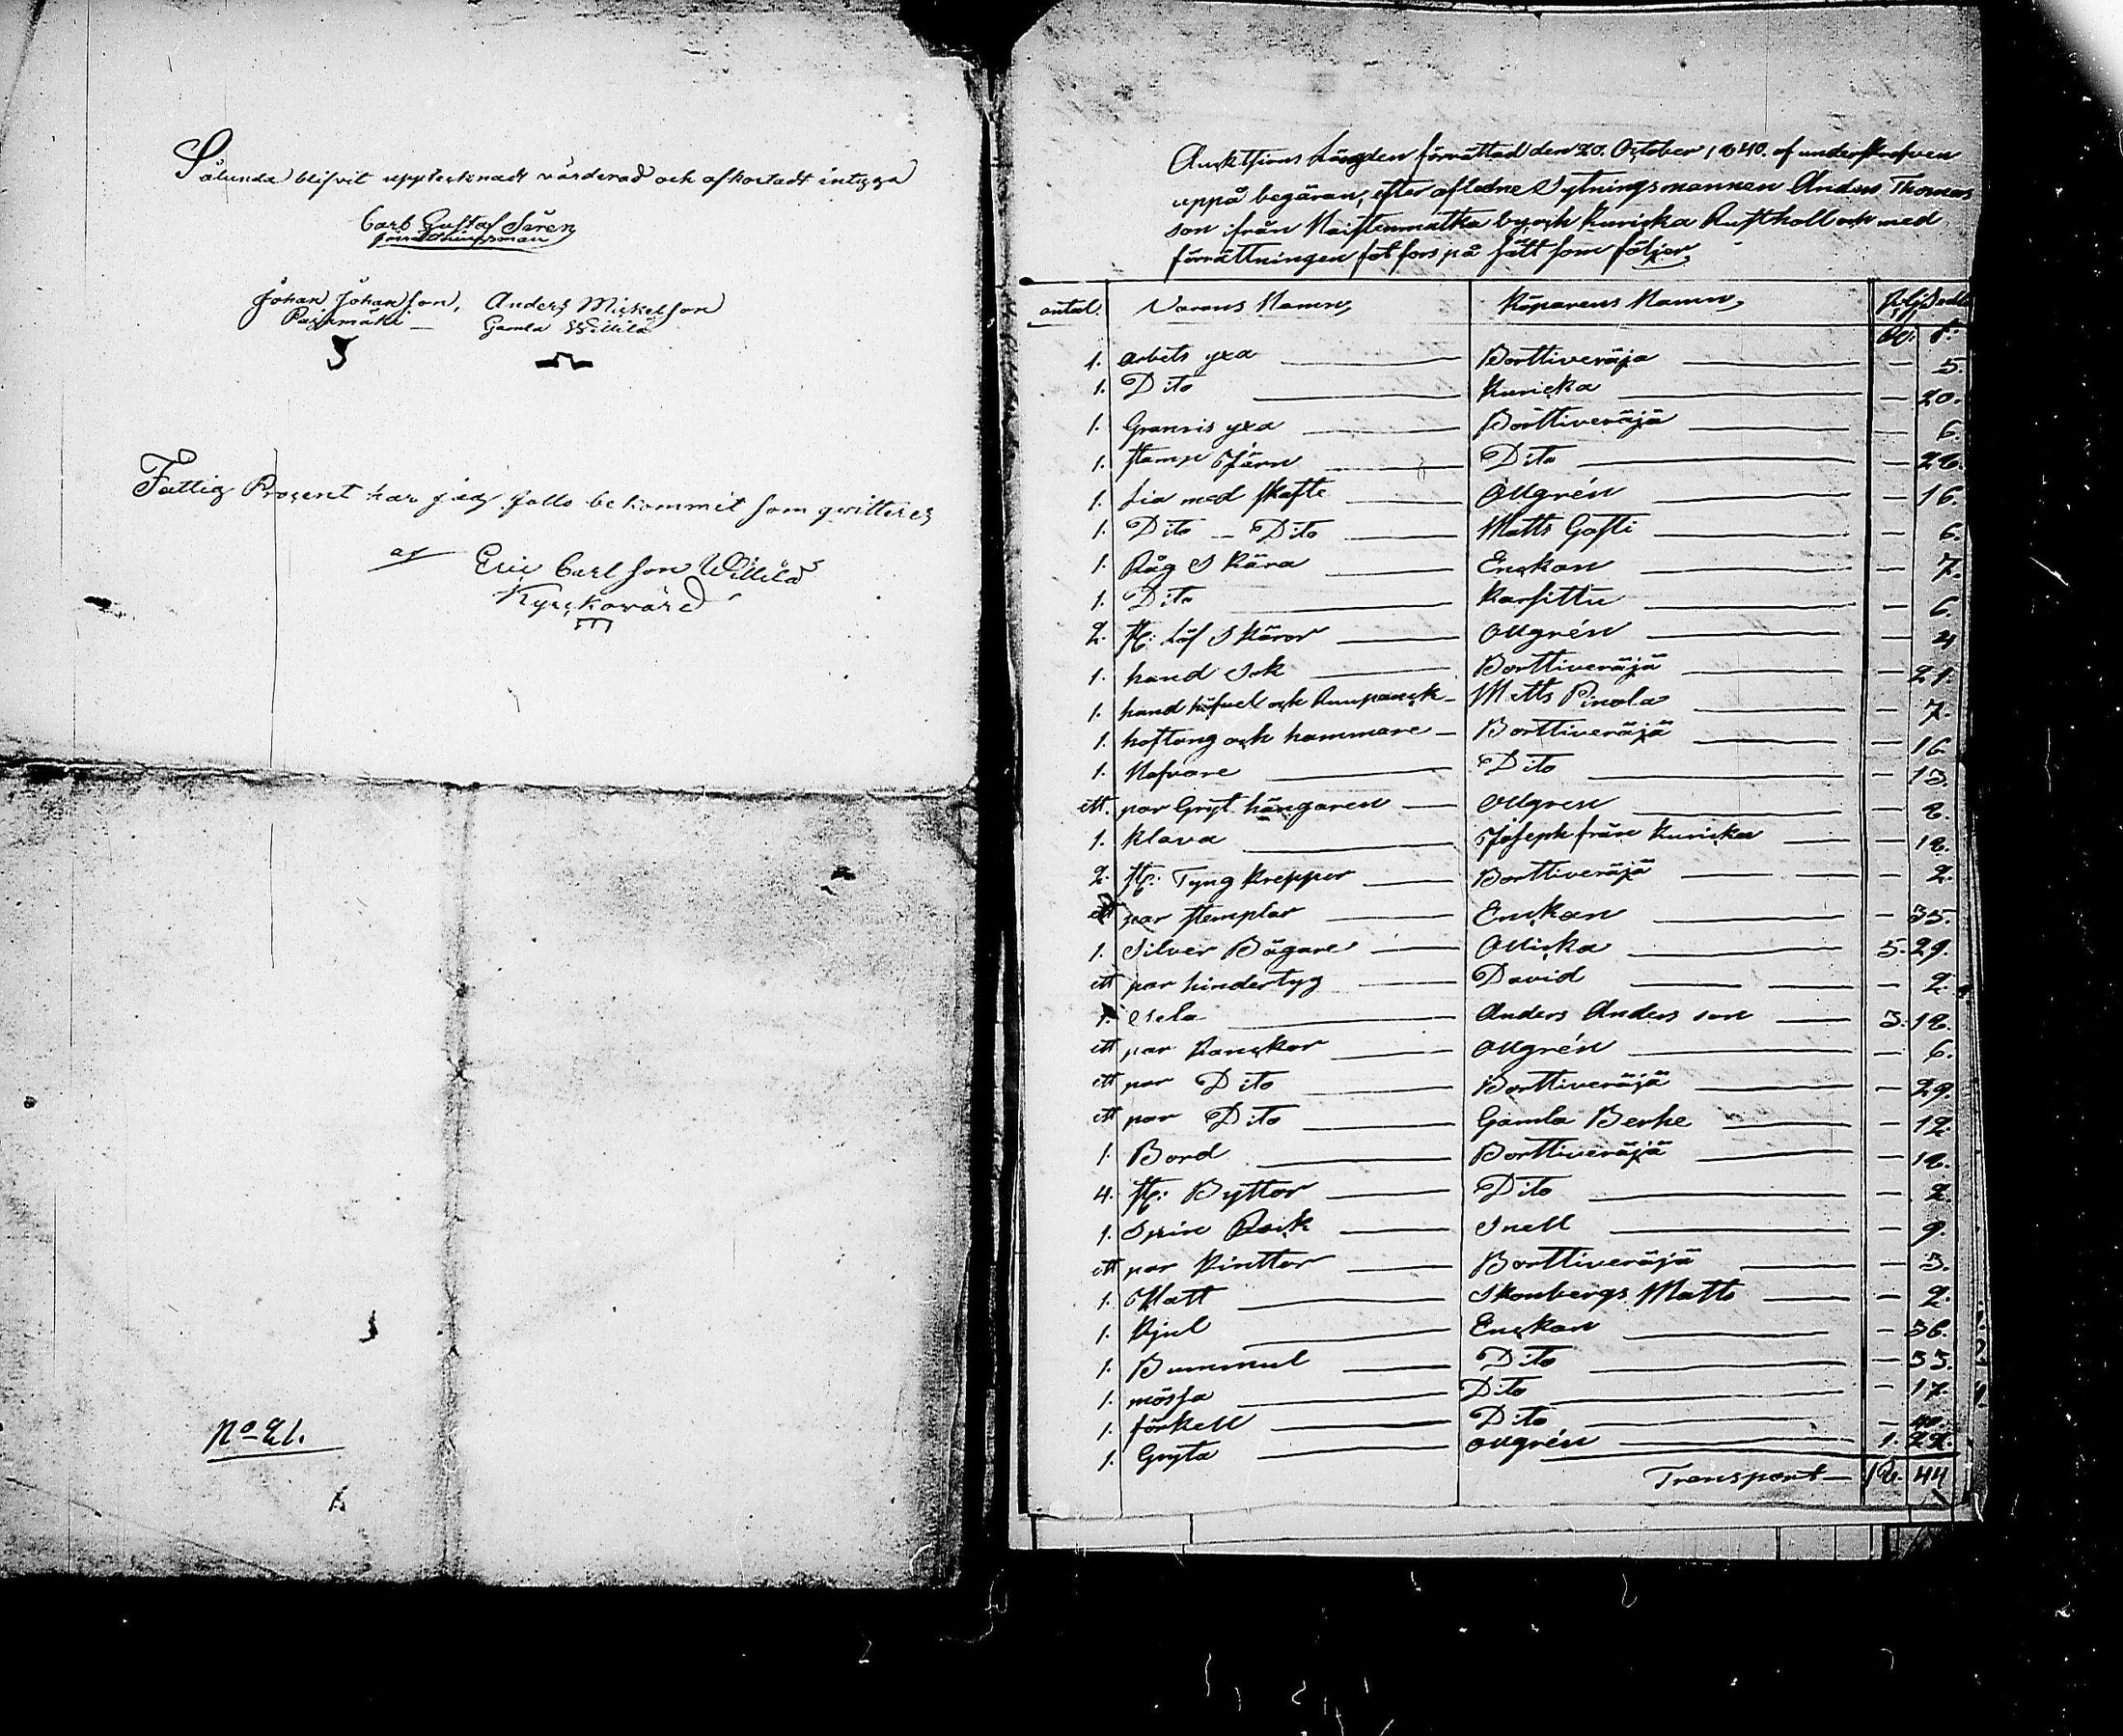 Sålunda blifvit upptecknadt värderad och afkortadt intyga
Carl Gustaf Sären
Johan Johansson, Anders Mickelsson
Pajumäki Gamla Willilä
Fattig Procent har jag fullo bekommit som qvitteres
af Eric Carlsson Willilä
Kyrckovärd
No 21.
Aucktions Längden förrättad den 20. October 1840. af underskrefven
uppå begäran, efter afledne Sytningsmannen Anders Thomas
son ifrån Naistenmatka by och Kuricka Rusthall och med
förrättningen fot fors på sätt som följer,
antal. Varans Namn, Köparens Namn,
1. arbets yxa Borttiveräjä — 5.
1. Dito Kuricka — 20.
1. Granris yxa Borttiveräjä — 6.
1. stamp Järn Dito — 22.
1. Lia med skafte Ollgrén — 16.
1. Dito – Dito Matts Gosti — 6.
1. Råg Skära Enckan — 7.
1. Dito Karsittu — 6.
2. st: Löf Skäror Ollgrén — 4
1. hand Sok Borttiveräjä — 21.
1. hand höfvel och Matts Pinola — 7.
1. hoftong och hammare Borttiveräjä — 16
1. Nafvare Dito — 13.
ett. par Gryt hängaren Ollgren — 2.
1. Klava Joseph från Kuricka — 12.
2. st: Tyng Krepper Borttiveräjä — 2.
ett par stemplar Enckan — 35.
1. Silver Bägare Ollicka 5. 29.
ett par hindertyg David — 2.
1. Sela Anders Andersson 3. 12.
ett par Hanckor Ollgrén — 6.
ett par Dito Borttiveräjä — 29.
ett par Dito Gamla Berhe — 12.
1. Bord Borttiveräjä — 12.
4. st: Byttor Dito — 2.
1. Spin Råck Snell — 9.
ett par Kinttor Borttiveräjä — 3.
1. Hatt Skonbergs Matts — 2.
1. Kjul Enckan — 36.
1. Bummul Dito — 33.
1. mössa Dito — 17.
1. förkell Dito — 40.
1. Gryta Ollgrén 1. 22.
Transport — 12. 44